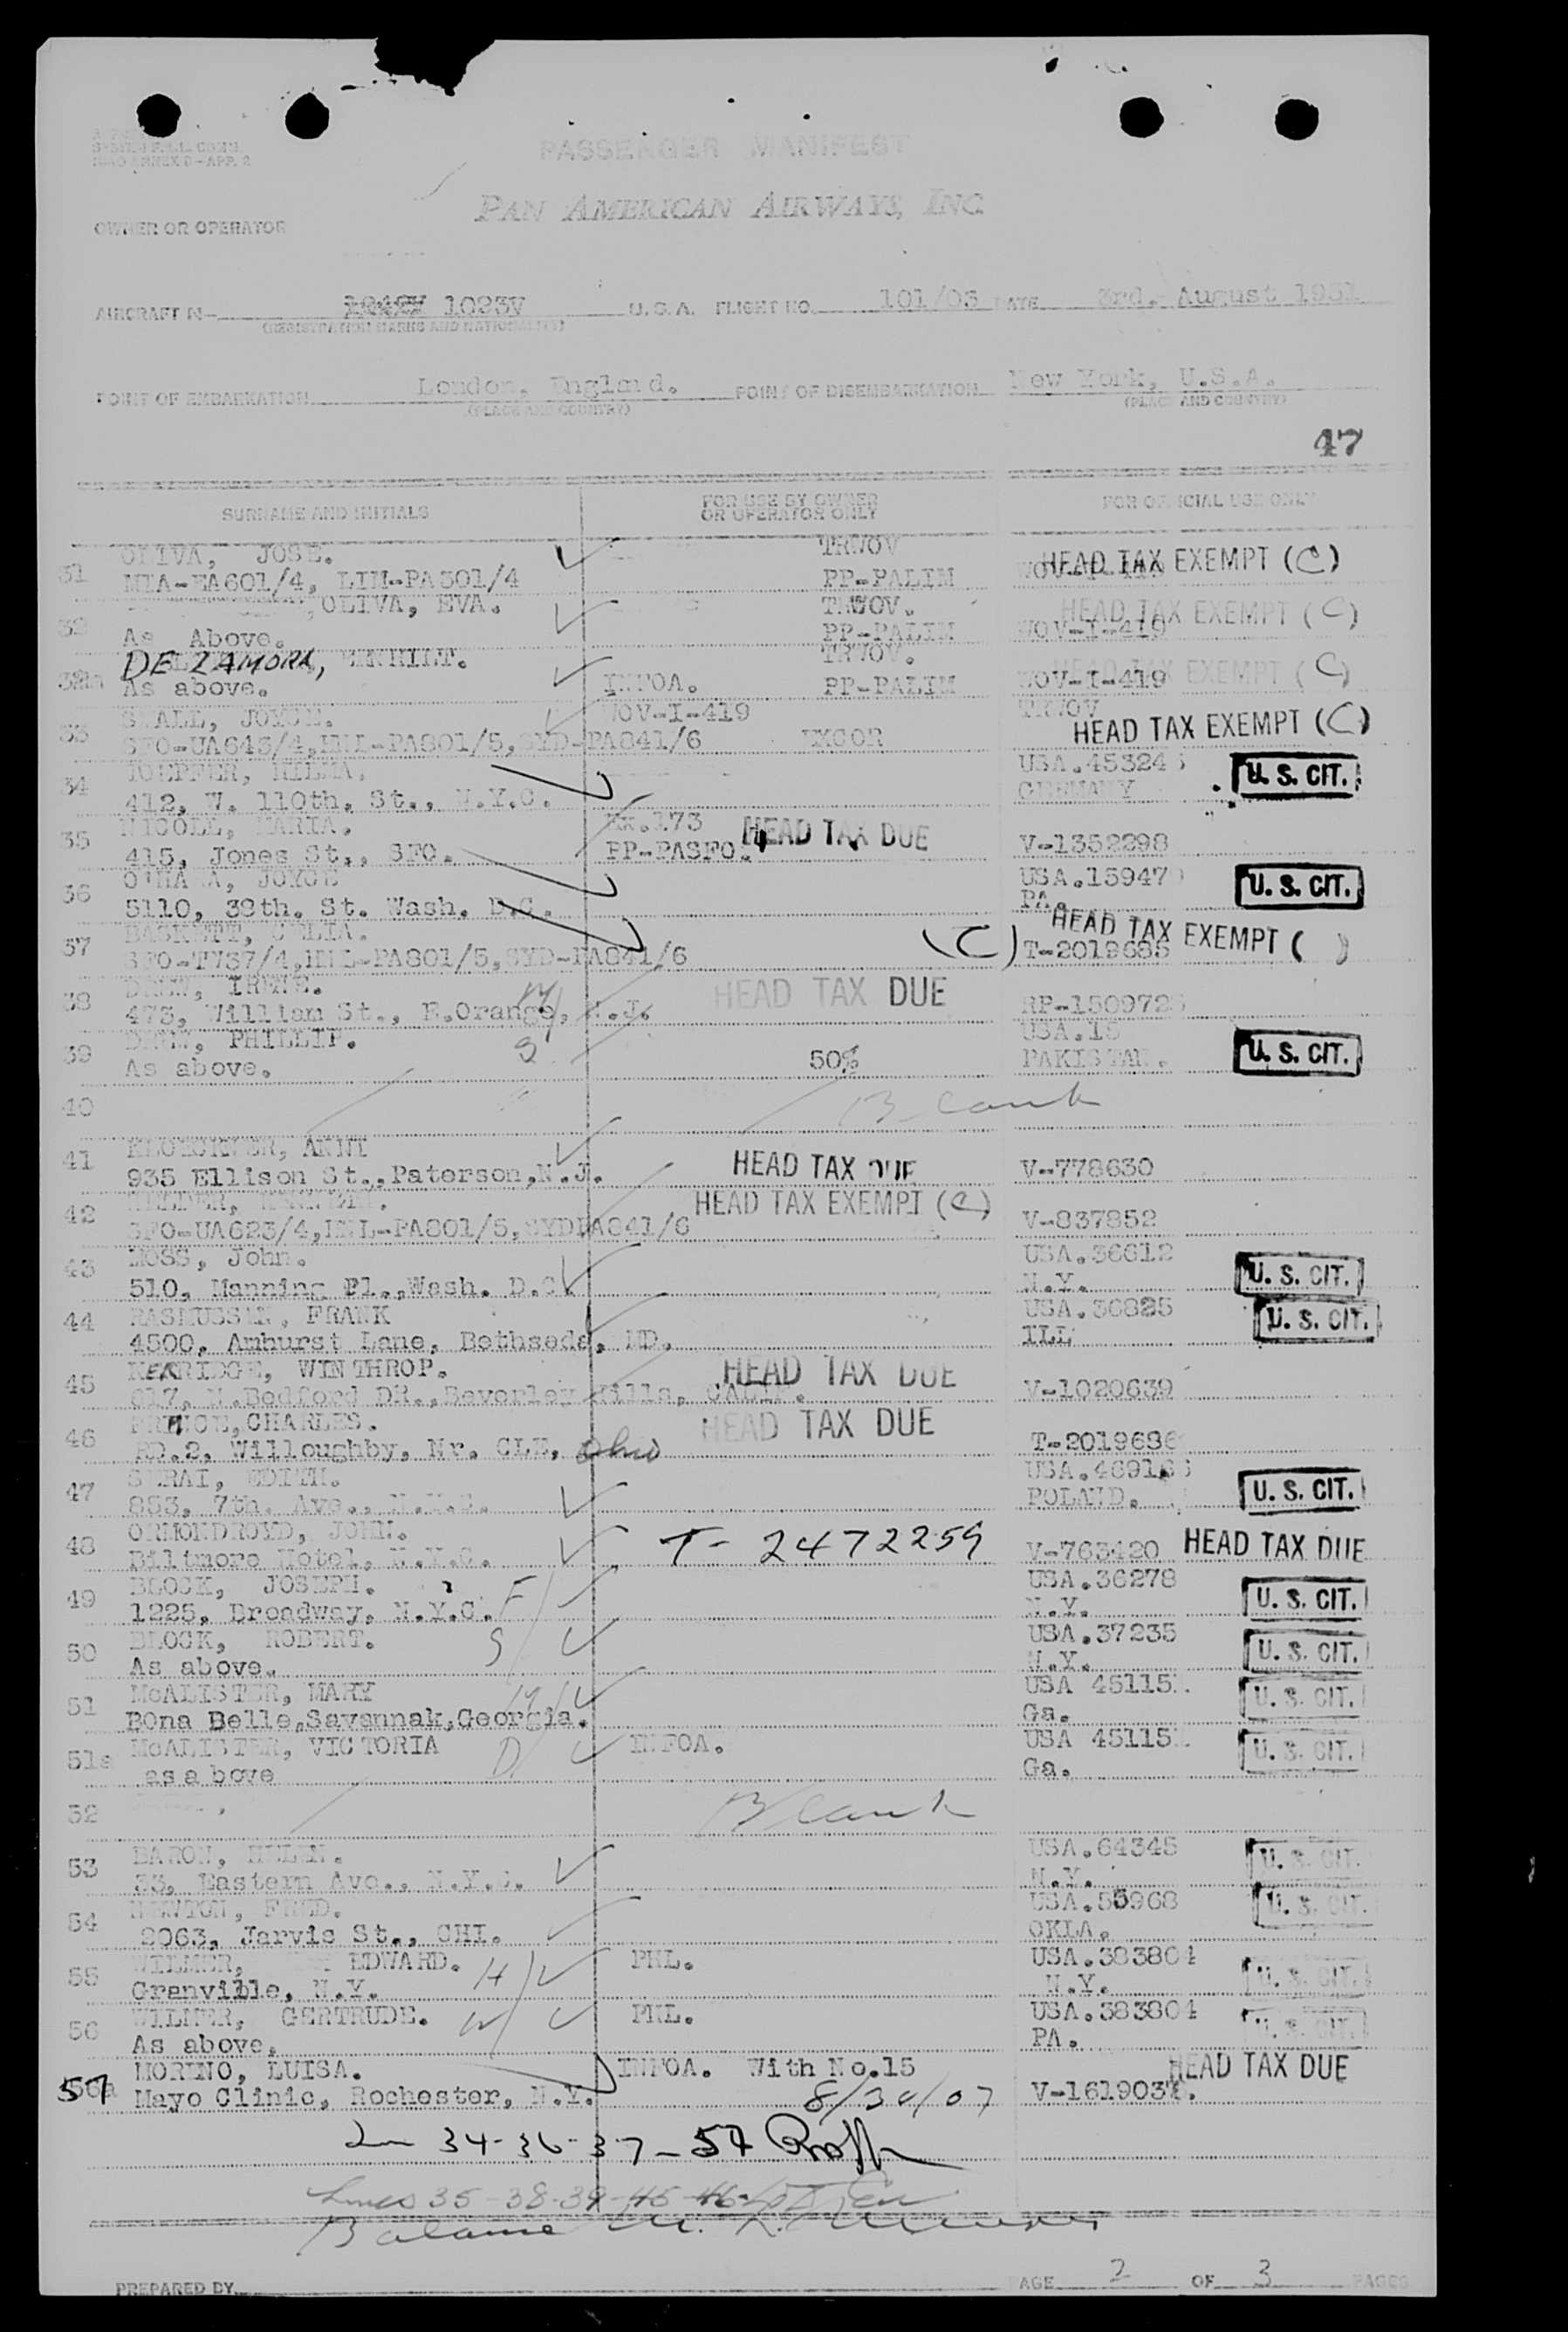 PASSENGER MANIFEST
PAN AMERICAN AIRWAYS, INC.
OWNER OR OPERATOR
AIRCRAFT N- 1023V U.S.A. FLIGHT NO. 101/03 DATE 3rd. August 1951
(REGISTRATION MARKS AND NATIONALITY)
POINT OF EMBARKATION London, England. POINT OF DISEMBARKATION New York, U.S.A.
(PLACE AND COUNTRY) (PLACE AND COUNTRY)
47
SURNAME AND INITIALS FOR USE BY OWNER OR OPERATOR ONLY FOR OFFICIAL USE ONLY
31 OLIVA, JOSE. TRWOV
MIA-EA601/4, LIM-PA301/4 PP-PALIM HEAD TAX EXEMPT (C)
32 OLIVA, EVA. TRWOV. HEAD TAX EXEMPT (C)
As Above. PP-PALIM WOV-I-419
DE ZAMORA, TRWOV. HEAD TAX EXEMPT (C)
As above. INFOA. PP-PALIM WOV-I-419
33 SMALL, JOYCE. WOV-I-419 TRWOV
SFO-UA643/4, HNL-PA801/5, SYD-PA841/6 HEAD TAX EXEMPT (C)
34 HILMA. USA.45324 U. S. CIT.
412, W. 110th. St., N.Y.C. GERMANY
35 NICOLL, MARIA. EX.173 HEAD TAX DUE
415, Jones St., SFO. PP-PASFO. V-1352298
36 O'HARA, JOYCE USA.15947 U. S. CIT.
5110, 38th. St. Wash. D.C. PA.
37 CELIA. HEAD TAX EXEMPT ( )
SFO-TW37/4, HNL-PA801/5, SYD-PA841/6 (C) T-2019685
38 DREW, IRENE. M HEAD TAX DUE
473, William St., E.Orange, N.J. RP-150972
39 DREW, PHILLIP. S USA.15 U. S. CIT.
As above. 50% PAKISTAN.
40 Blank
41 KLOECKNER, ANNI HEAD TAX DUE
935 Ellison St., Paterson, N.J. V-778630
42 HEAD TAX EXEMPT (C)
SFO-UA623/4, HNL-PA801/5, SYDPA841/6 V-837852
43 MOSS, John. USA.36612
510, Manning Pl., Wash. D.C. N.Y. U. S. CIT.
44 RASMUSSEN, FRANK USA.36825
4500, Amhurst Lane, Bethseda, MD. ILL U. S. CIT.
45 KEARIDGE, WINTHROP. HEAD TAX DUE
617, N.Bedford DR., Beverley Hills, CALIF. V-1020639
46 PRINCE, CHARLES. HEAD TAX DUE
RD.2, Willoughby, Nr. CLE, Ohio T-2019686
47 EDITH. USA.4691
853, 7th. Ave., N.Y.C. POLAND. U. S. CIT.
48 ORMONDROYD, JOHN. T- 2472259 HEAD TAX DUE
Biltmore Hotel, N.Y.C. V-763420
49 BLOCK, JOSEPH. F USA.36278 U. S. CIT.
1225, Broadway, N.Y.C. N.Y.
50 BLOCK, ROBERT. S USA.37235 U. S. CIT.
As above. N.Y.
51 McALISTER, MARY M USA 45115 U. S. CIT.
BOna Belle, Savannak, Georgia. Ga.
51a McALISTER, VICTORIA D INFOA. USA 45115 U. S. CIT.
as above Ga.
52 Blank
53 BARON, HELEN. USA.64345
33, Eastern Ave., N.Y.C. N.Y. U. S. CIT.
54 NEWTON, FRED. USA.55968
2063, Jarvis St., CHI. OKLA. U. S. CIT.
55 WILMER, EDWARD. H PRL. USA.383804
Granville, N.Y. N.Y. U. S. CIT.
56 WILMER, GERTRUDE. W PRL. USA.383804
As above. PA. U. S. CIT.
57 MORINO, LUISA. INFOA. With No.15 HEAD TAX DUE
Mayo Clinic, Rochester, N.Y. 8/30/07 V-161903
34-36-37-57
Lines 35-38-39-45-46
Balance
PREPARED BY PAGE 2 OF 3 PAGES